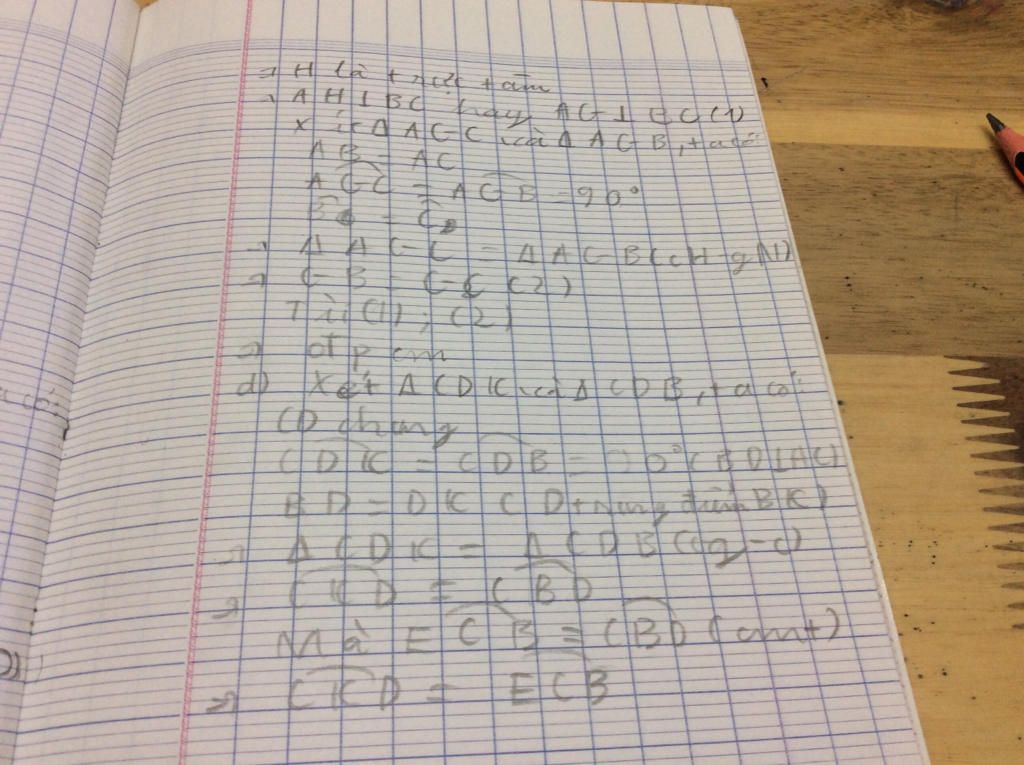 => H là trực tâm
=> AH ⊥ BC hay AG ⊥ BC (1)
Xét Δ AGC và Δ AGB, ta có:
AB = AC
AGC = AGB = 90°
B = C
=> Δ AGC = Δ AGB (CH-gN)
=> GB = GC (2)
Từ (1); (2)
=> đpcm
d) Xét Δ CDK và Δ CDB, ta có:
CD chung
CDK = CDB = 90° (BD ⊥ AC)
BD = DK (D trung điểm BK)
=> Δ CDK = Δ CDB (cg-c)
=> CKD = CBD
Mà ECB = CBD (cmt)
=> CKD = ECB